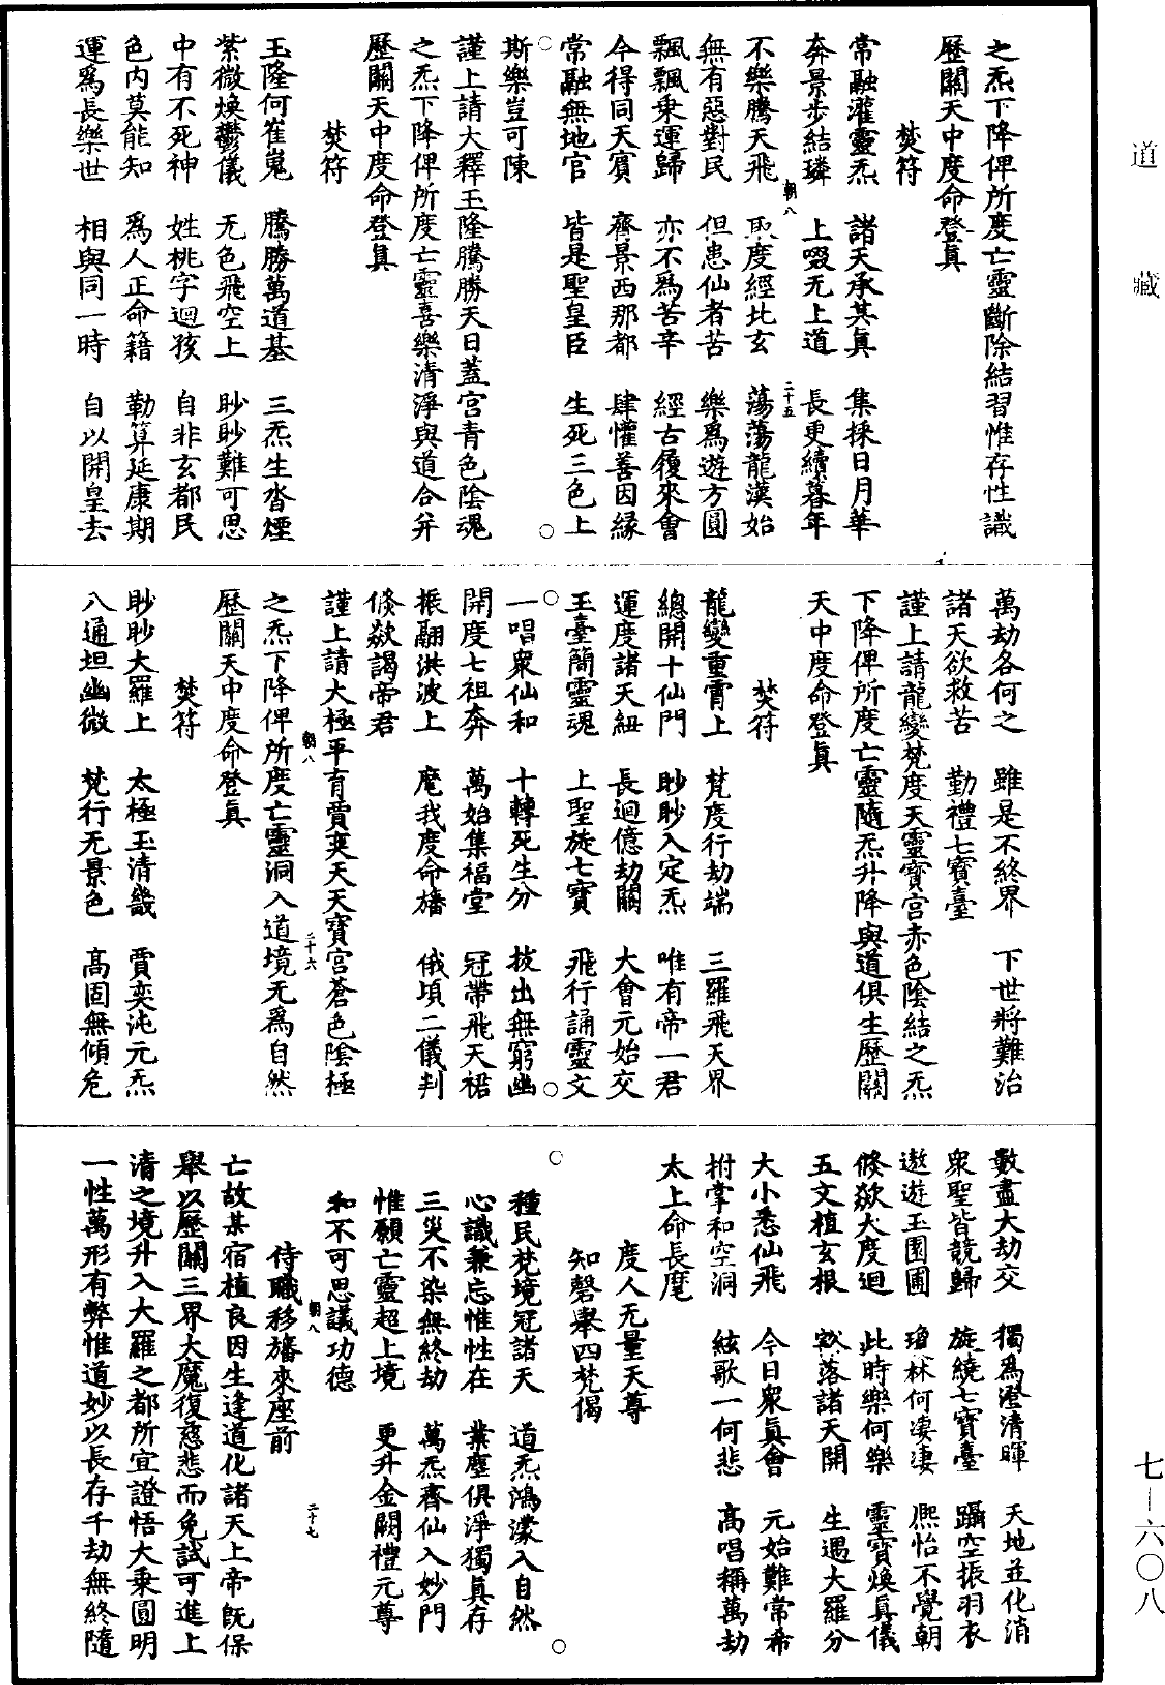 道藏
之炁下降俾所度亡靈斷除結習惟存性識
歷關天中度命登真
焚符
常融灌靈炁　諸天承其真　集採日月華
奔景步結璘　上啜无上道　長更續暮年
不樂騰天飛　取度經比玄　蕩蕩龍漢始
朝八　二十五
無有惡對民　但患仙者苦　樂為遊方圓
飄飄乘運歸　亦不為苦辛　經古履來會
今得同天賓　齊景西那都　肆懽善因緣
常融無地官　皆是聖皇臣　生死三色上
斯樂豈可陳
謹上請大釋玉隆騰勝天日蓋宮青色陰魂
之炁下降俾所度亡靈喜樂清淨與道合并
歷關天中度命登真
焚符
玉隆何崔嵬　騰勝萬道基　三炁生沓煙
紫微煥鬱儀　无色飛空上　眇眇難可思
中有不死神　姓桃字迴孩　自非玄都民
色內莫能知　為人正命籍　勒筭延康期
運為長樂世　相與同一時　自以開皇去
萬劫各何之　雖是不終界　下世將難治
諸天欲救苦　勤禮七寶臺
謹上請龍變梵度天靈寶宮赤色陰結之炁
下降俾所度亡靈隨炁升降與道俱生歷關
天中度命登真
焚符
龍變重霄上　梵度行劫端　三羅飛天界
總開十仙門　眇眇入定炁　唯有帝一君
運度諸天紐　長迴億劫關　大會元始交
玉臺簡靈魂　上聖旋七寶　飛行誦靈文
一唱眾仙和　十轉死生分　拔出無窮幽
開度七祖奔　萬始集福堂　冠帶飛天裙
振翮洪波上　麾我度命旛　俄頃二儀判
倏欻謁帝君
謹上請太極平育賈奕天天寶宮蒼色陰極
之炁下降俾所度亡靈洞入道境无為自然
朝八　二十六
歷關天中度命登真
焚符
眇眇大羅上　太極玉清畿　賈奕沌元炁
八通坦幽微　梵行无景色　高固無傾危
數盡大劫交　獨為澄清暉　天地並化消
眾聖皆競歸　旋繞七寶臺　躡空振羽衣
遨遊玉園圃　瓊林何淒淒　熙怡不覺朝
倏欻大度迴　此時樂何樂　靈寶煥真儀
五文植玄根　豁落諸天開　生遇大羅分
大小悉仙飛　今日眾真會　元始難常希
拊掌和空洞　絃歌一何悲　高唱稱萬劫
太上命長麾
度人无量天尊
知磬舉四梵偈
種民梵境冠諸天　道炁鴻濛入自然
心識兼忘惟性在　業塵俱淨獨真存
三災不染無終劫　萬炁齊仙入妙門
惟願亡靈超上境　更升金闕禮元尊
和不可思議功德
侍職移旛來座前
朝八　二十七
亡故某宿植良因生逢道化諸天上帝既保
舉以歷關三界大魔復慈悲而免試可進上
清之境升入大羅之都所宜證悟大乘圓明
一性萬形有弊惟道妙以長存千劫無終隨
七—六〇八